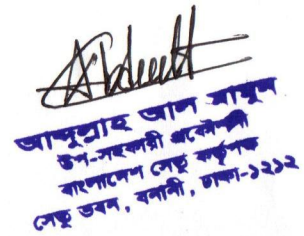 আব্দুল্লাহ আল মামুন
উপ-সহকারী প্রকৌশলী
বাংলাদেশ সেতু কর্তৃপক্ষ
সেতু ভবন, বনানী, ঢাকা-১২১২